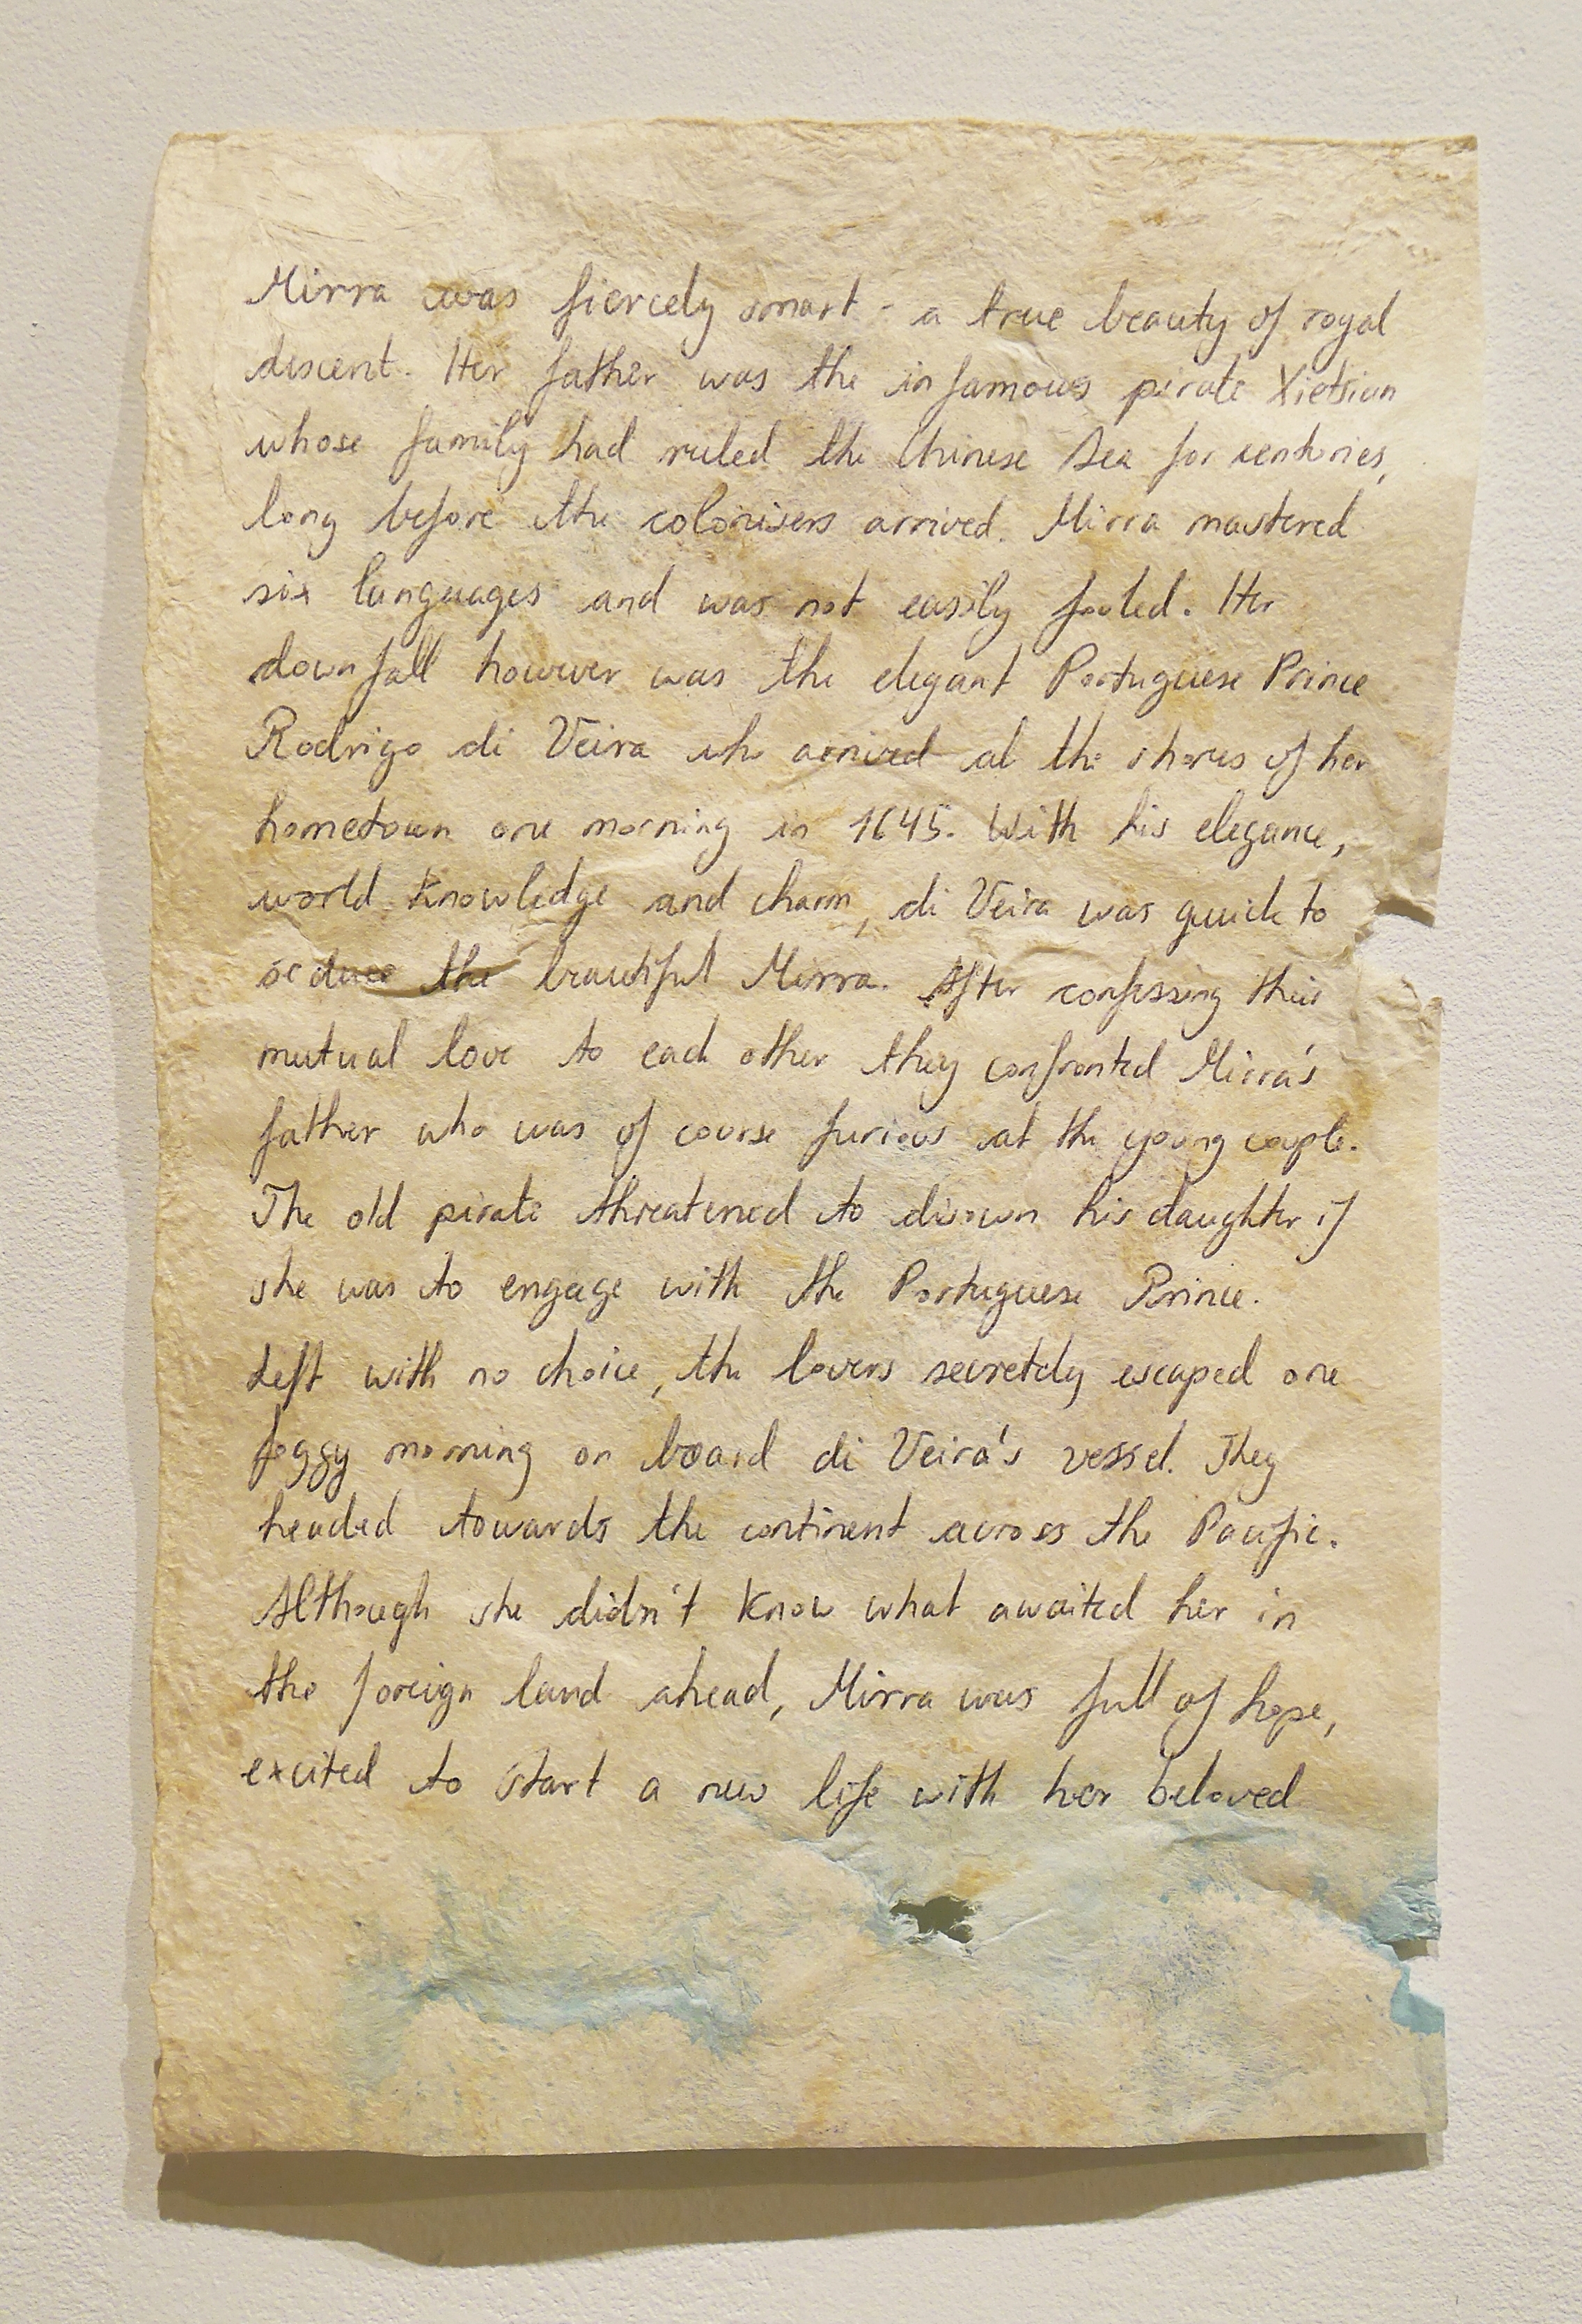 Mirra was fiercely smart - a true beauty of royal
descent. Her father was the infamous pirate Xietsian
whose family had ruled the Chinese Sea for centuries,
long before the colonisers arrived. Mirra mastered
six languages and was not easily fooled. Her
downfall however was the elegant Portuguese Prince
Rodrigo di Veira who arrived at the shores of her
hometown one morning in 1645. With his elegance,
world knowledge and charm, di Veira was quick to
seduce the beautiful Mirra. After confessing their
mutual love to each other they confronted Mirra's
father who was of course furious at the young couple.
The old pirate threatened to disown his daughter if
she was to engage with the Portuguese Prince.
Left with no choice, the lovers secretely escaped one
foggy morning on board di Veira's vessel. They
headed towards the continent across the Pacific.
Although she didn't know what awaited her in
the foreign land ahead, Mirra was full of hope,
excited to start a new life with her beloved